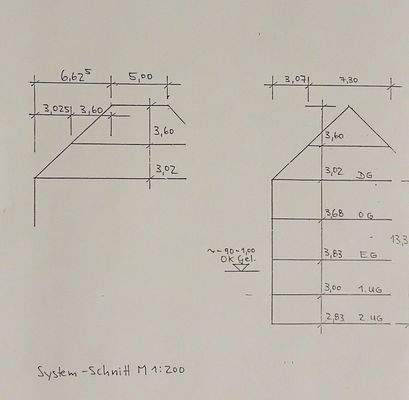 6,62⁵ 5,00
3,025 3,60
3,60
3,02
3,07 7,30
3,60
3,02 DG
3,68 OG
3,83 EG
3,00 1.UG
2,83 2.UG
~-90-1,00
OK Gel.
13,3
System-Schnitt M 1:200